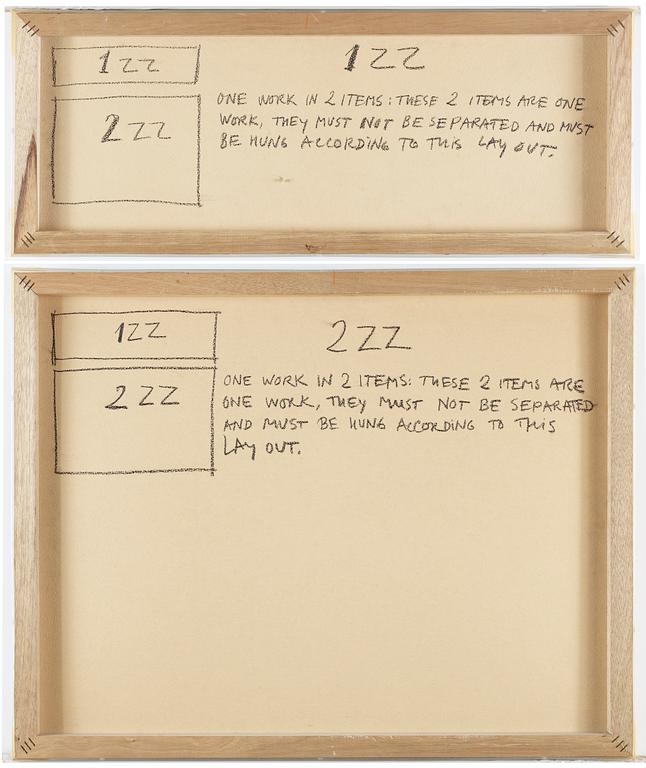 1ZZ
1ZZ
2ZZ
ONE WORK IN 2 ITEMS: THESE 2 ITEMS ARE ONE
WORK, THEY MUST NOT BE SEPARATED AND MUST
BE HUNG ACCORDING TO THIS LAY OUT.
1ZZ
2ZZ
2ZZ
ONE WORK IN 2 ITEMS: THESE 2 ITEMS ARE
ONE WORK, THEY MUST NOT BE SEPARATED
AND MUST BE HUNG ACCORDING TO THIS
LAY OUT.